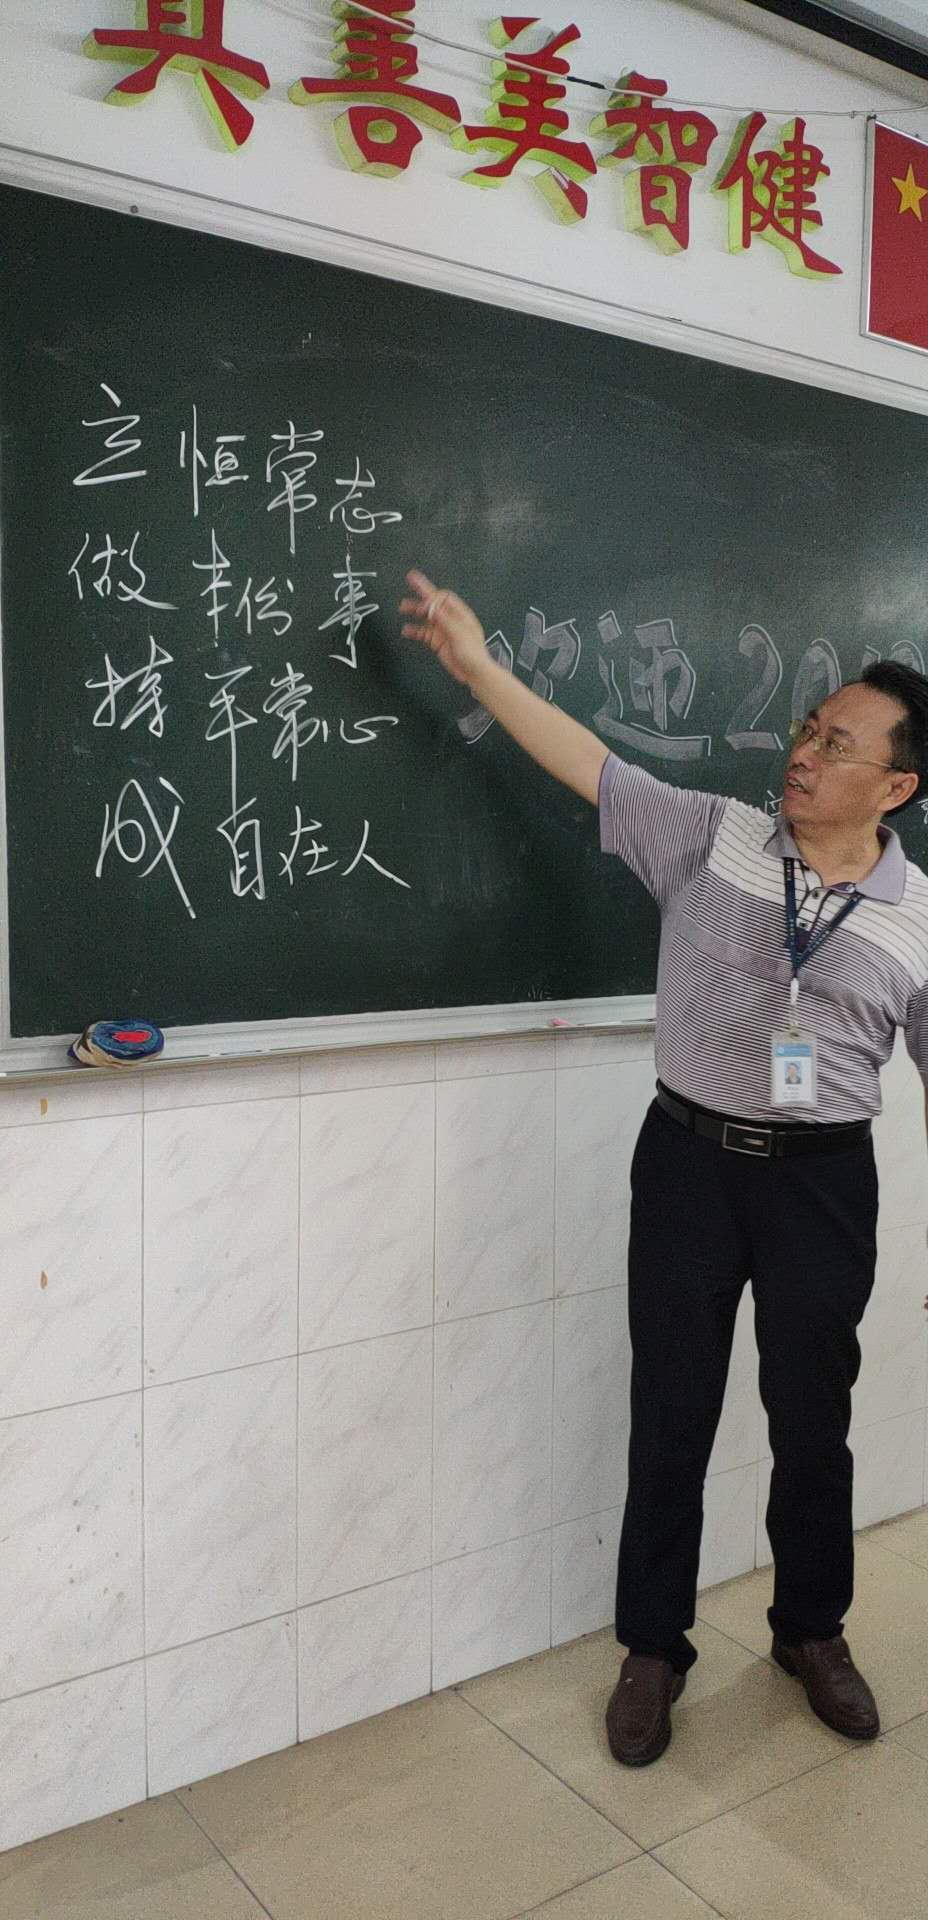 真善美智健
立恒常志
做本份事
持平常心
成自在人
欢迎20